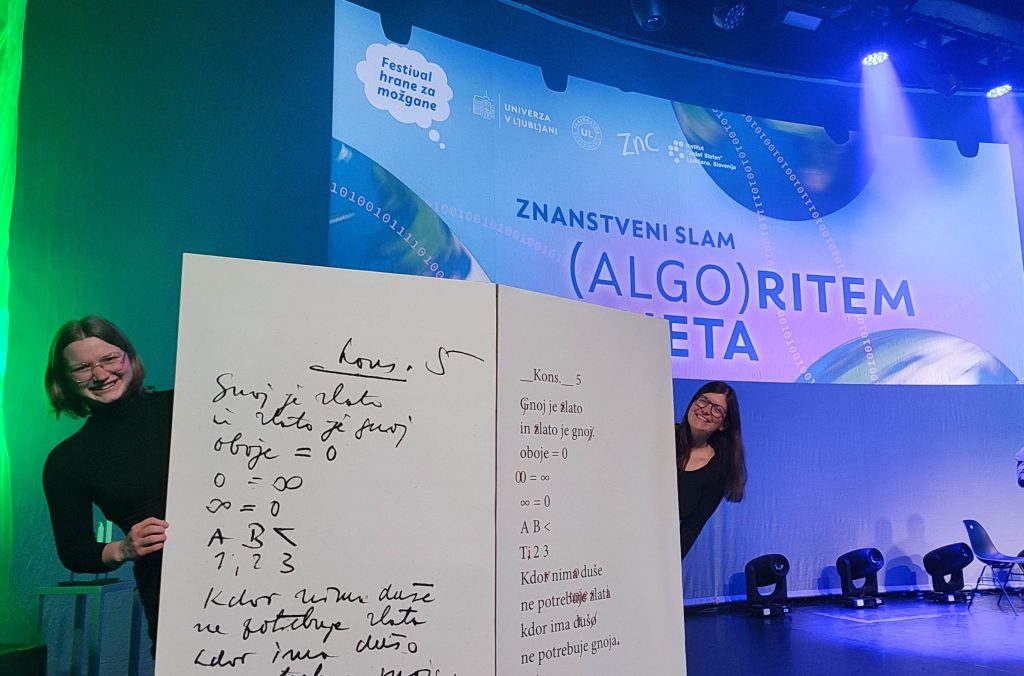 Festival
hrane za
možgane
UNIVERZA
V LJUBLJANI
UL
ZnC
Institut
"Jožef Stefan"
Ljubljana, Slovenija
ZNANSTVENI SLAM
(ALGO)RITEM
Kons. 5
Gnoj je zlato
in zlato je gnoj
oboje = 0
0 = ∞
∞ = 0
A B <
1, 2 3
Kdor nima duše
ne potrebuje zlata
kdor ima dušo
__Kons.__ 5
Gnoj je zlato
in zlato je gnoj.
oboje = 0
= ∞
∞ = 0
A B <
2 3
Kdor nima duše
ne potrebuje zlata
kdor ima
ne potrebuje gnoja.